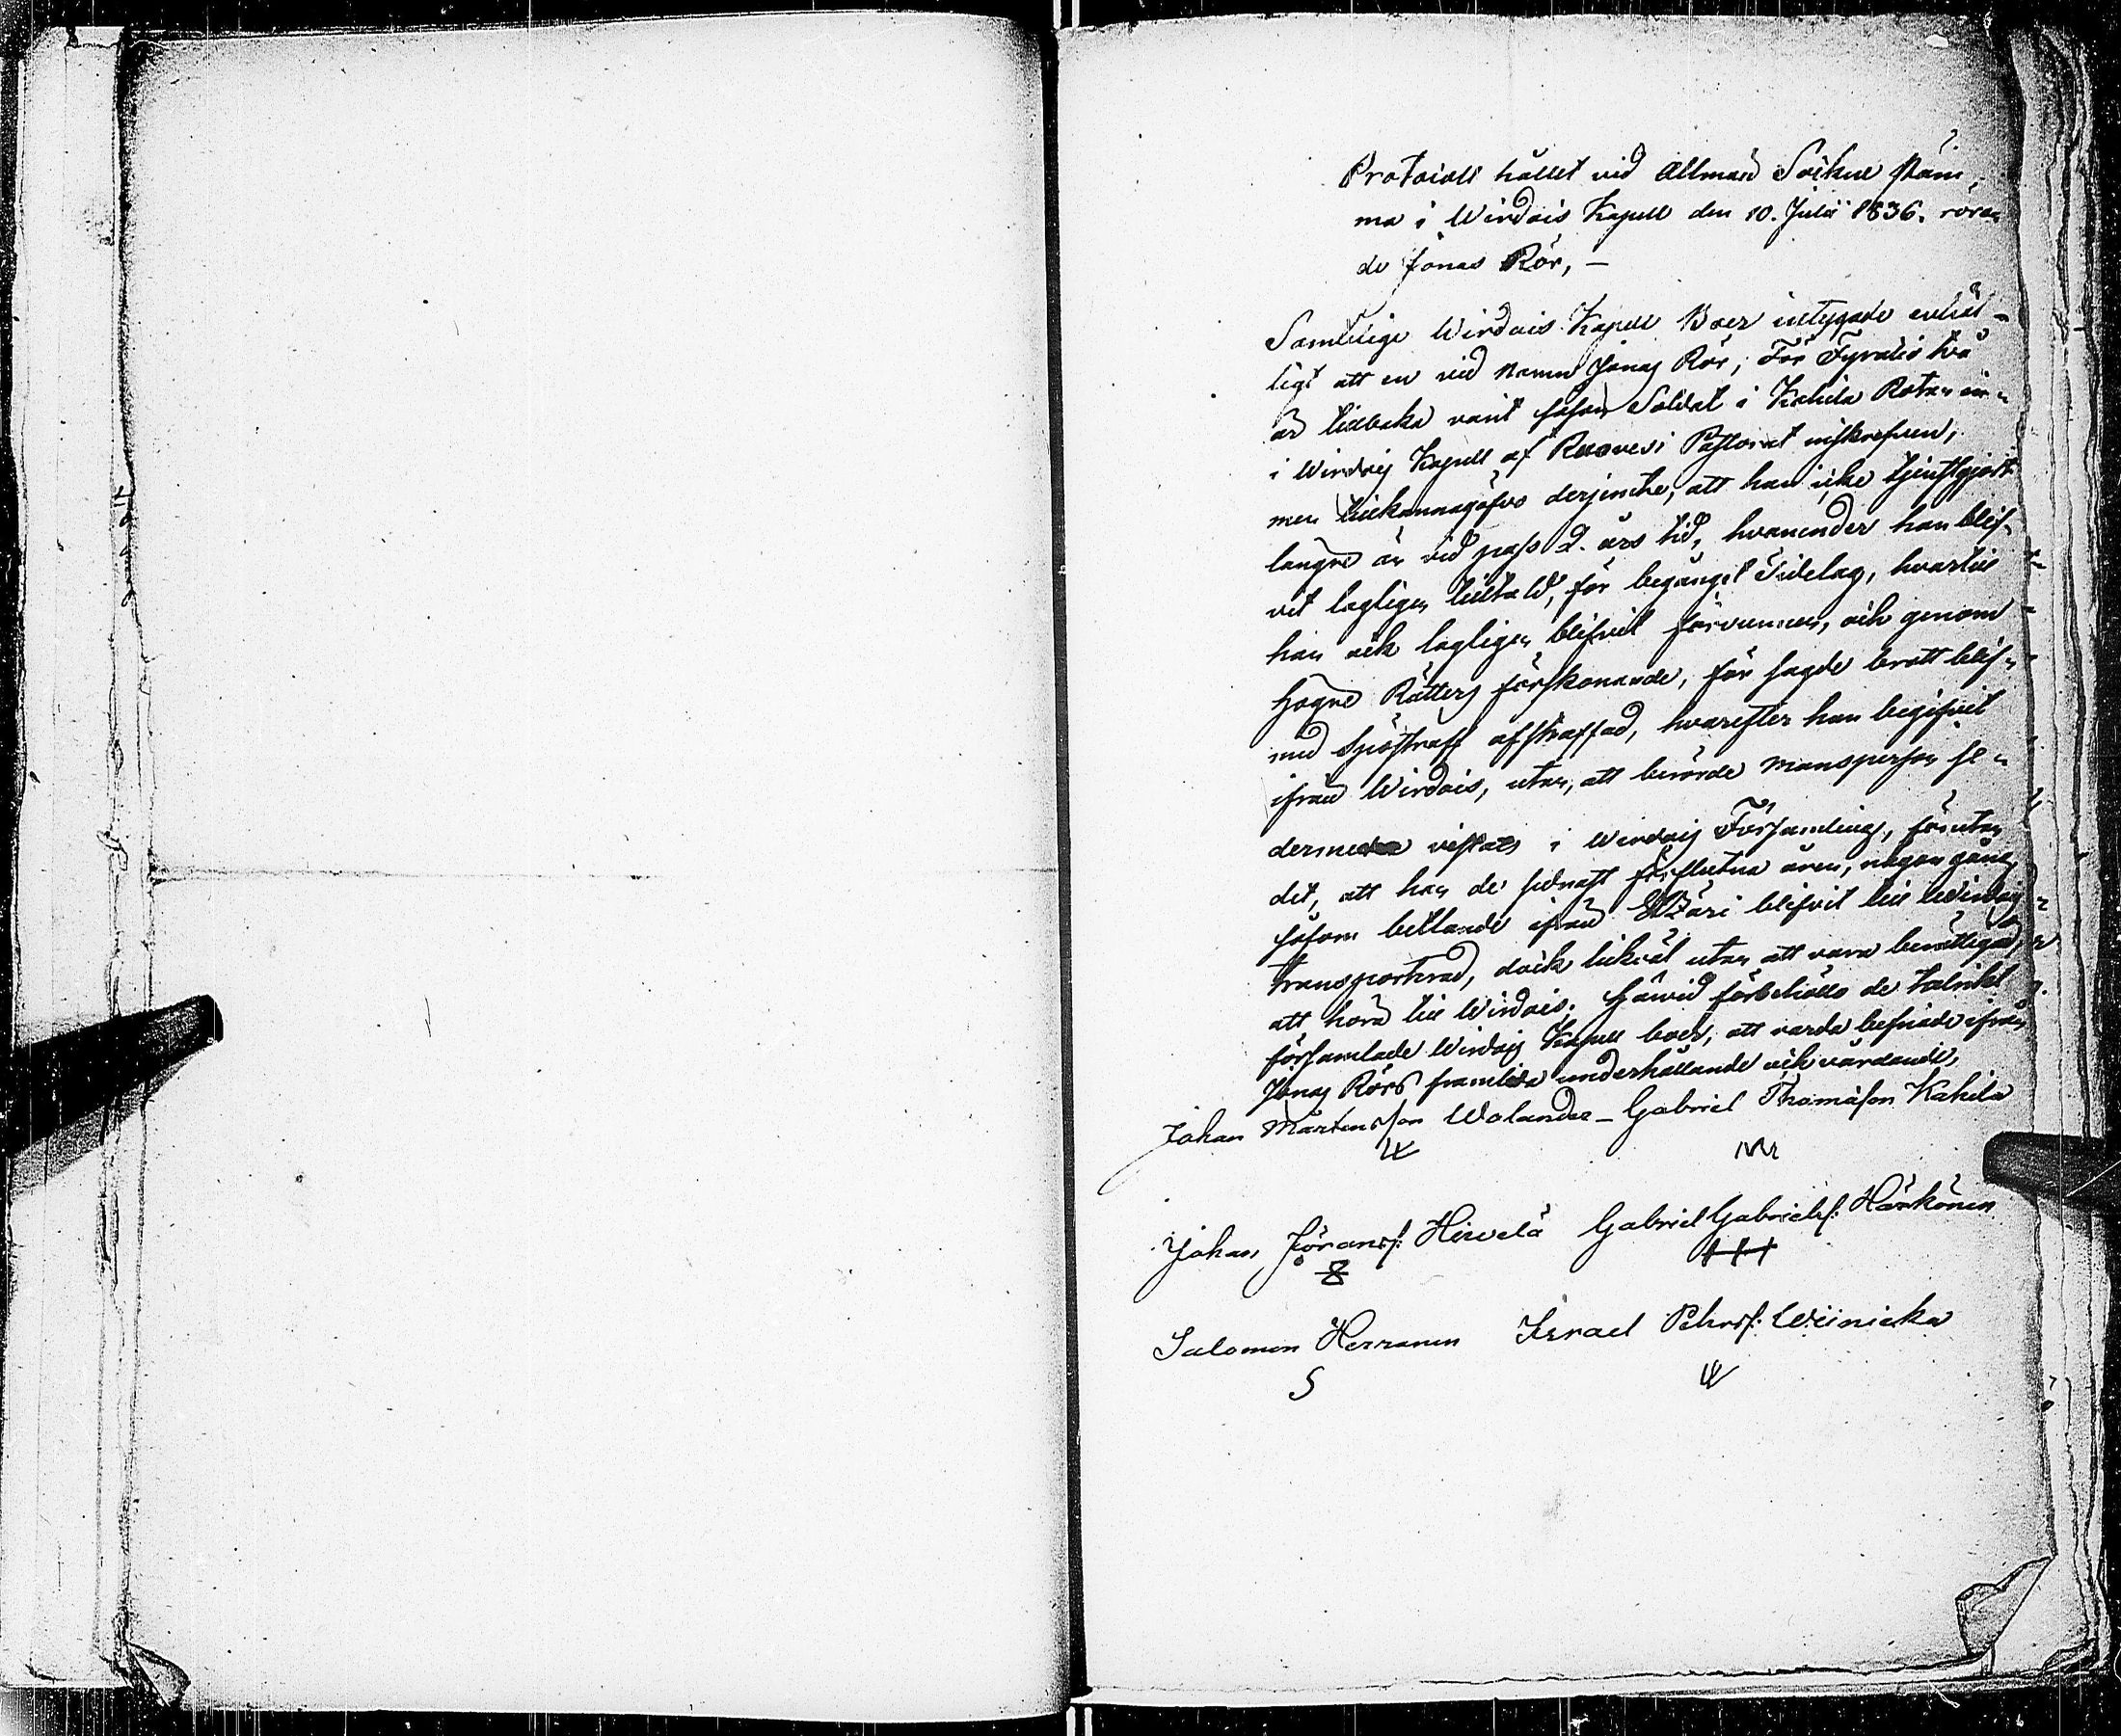 Protocoll hållet vid Allmän Sockne stäm-
ma i Wirdois Kapell den 10. Julii 1836. röran
de Jonas Rör, —
Samtelige Wirdois Kapell Boer intygade enhäl-
ligt att en vid namn Jonas Rör, För Fyratio två
år tillbaka varit såsom Soldat i Kahila Roten in-
i Wirdois Kapell af Ruovesi Pastorat inskrefven,
men tillkännagåfvo derjemte, att han icke tjenstgjort
längre än vid pass 2. års tid, hvarunder han blif-
vit lagligen tilltald, för begånget Tidelag, hvartill
han ock lagligen blifvit förvunnen, och genom
högre Rätters förskonande, för sagde brott blif-
med spöstraff afstraffad, hvarefter han begifvit
ifrån Wirdois, utan, att berörde mansperson se-
dermera vistats i Wirdois Församling, förutan
det, att han de sednast förflutna åren, någon gång
såsom bettlande ifrån Etzäri blifvit till Wirdois
transporterad, dock likväl utan att vara berättigad,
att höra till Wirdois. Härvid förbehöllo de talrikt
församlade Wirdois Kapell boer, att varda befriade ifrån
Jonas Rörs framtida underhållande och vårdande,
Johan Mårtensson Wolander — Gabriel Thomasson Kahila
Johan Jöranss: Hirvelä Gabriel Gabrielss: Härkönen
Salomon Herranen Israel Pehrss: Wiinicka
S